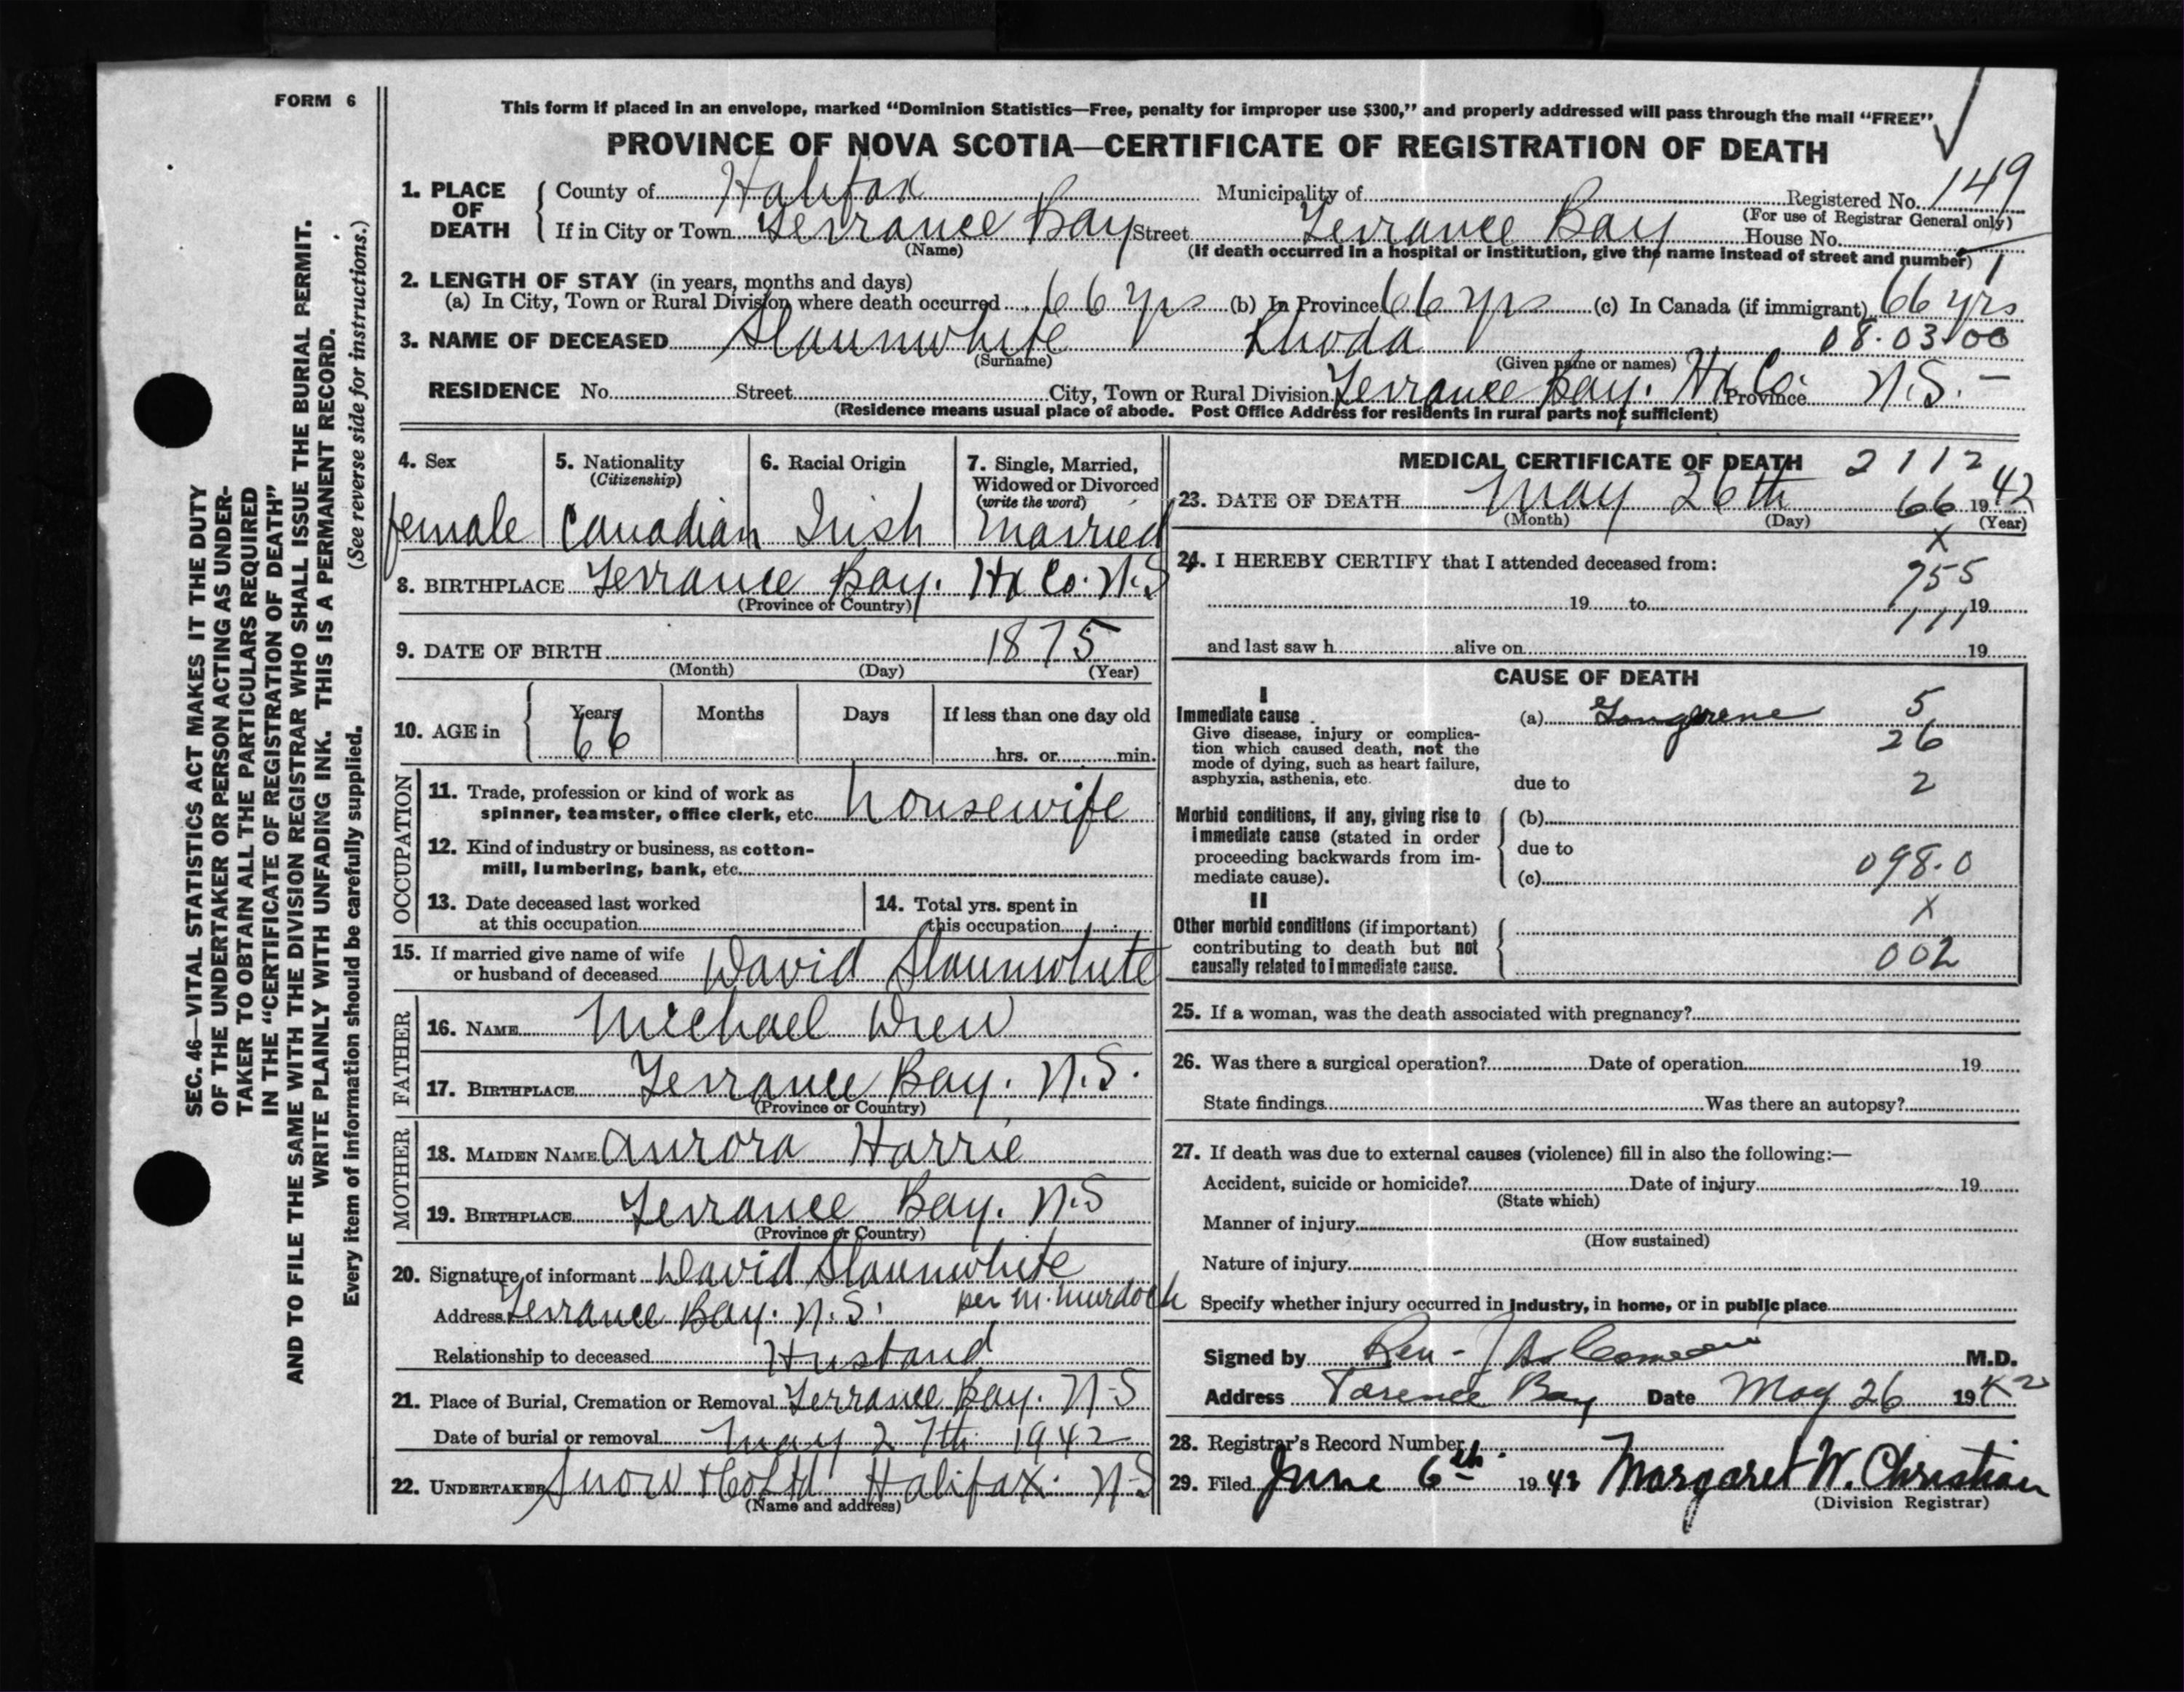 FORM 6
This form if placed in an envelope, marked "Dominion Statistics—Free, penalty for improper use $300," and properly addressed will pass through the mail "FREE"
PROVINCE OF NOVA SCOTIA—CERTIFICATE OF REGISTRATION OF DEATH
1. PLACE OF DEATH
County of Halifax Municipality of Registered No. 149
(For use of Registrar General only)
If in City or Town Terrance Bay Street Terrance Bay House No.
(Name) (If death occurred in a hospital or institution, give the name instead of street and number) 1
2. LENGTH OF STAY (in years, months and days)
(a) In City, Town or Rural Division where death occurred 66 yrs (b) In Province 66 yrs (c) In Canada (if immigrant) 66 yrs
3. NAME OF DECEASED Slaunwhite Rhoda 08.03.00
(Surname) (Given name or names)
RESIDENCE No. Street City, Town or Rural Division Terrance Bay. Hx Co. Province N.S. —
(Residence means usual place of abode. Post Office Address for residents in rural parts not sufficient)
4. Sex
female
5. Nationality
(Citizenship)
Canadian
6. Racial Origin
Irish
7. Single, Married,
Widowed or Divorced
(write the word)
married
8. BIRTHPLACE Terrance Bay. Hx Co. N.S
(Province or Country)
9. DATE OF BIRTH 1875
(Month) (Day) (Year)
10. AGE in
Years Months Days If less than one day old
66 hrs. or min.
OCCUPATION
11. Trade, profession or kind of work as
spinner, teamster, office clerk, etc. housewife
12. Kind of industry or business, as cotton-
mill, lumbering, bank, etc.
13. Date deceased last worked
at this occupation
14. Total yrs. spent in
this occupation
15. If married give name of wife
or husband of deceased David Slaunwhite
FATHER
16. NAME Michael Drew
17. BIRTHPLACE Terrance Bay. N.S.
(Province or Country)
MOTHER
18. MAIDEN NAME Aurora Harrie
19. BIRTHPLACE Terrance Bay. N.S
(Province or Country)
20. Signature of informant David Slaunwhite
Address Terrance Bay. N.S. per M. Murdoch
Relationship to deceased Husband
21. Place of Burial, Cremation or Removal Terrance Bay. N-S
Date of burial or removal May 27th 1942
22. UNDERTAKER Snow & Co Ltd Halifax. N-S
(Name and address)
MEDICAL CERTIFICATE OF DEATH 2112
23. DATE OF DEATH May 26th 66 1942
(Month) (Day) (Year)
x
24. I HEREBY CERTIFY that I attended deceased from:
755
19 to 19
111
and last saw h alive on 19
CAUSE OF DEATH
I
Immediate cause
Give disease, injury or complica-
tion which caused death, not the
mode of dying, such as heart failure,
asphyxia, asthenia, etc.
(a) Gangrene 5
26
due to 2
Morbid conditions, if any, giving rise to
immediate cause (stated in order
proceeding backwards from im-
mediate cause).
(b)
due to
(c) 098.0
II
x
Other morbid conditions (if important)
contributing to death but not
causally related to immediate cause.
002
25. If a woman, was the death associated with pregnancy?
26. Was there a surgical operation? Date of operation 19
State findings Was there an autopsy?
27. If death was due to external causes (violence) fill in also the following:—
Accident, suicide or homicide? Date of injury 19
(State which)
Manner of injury
(How sustained)
Nature of injury
Specify whether injury occurred in industry, in home, or in public place
Signed by Rev. Comeau M.D.
Address Terence Bay Date May 26 1942
28. Registrar's Record Number
29. Filed June 6th 1942 Margaret W. Christian
(Division Registrar)
SEC. 46—VITAL STATISTICS ACT MAKES IT THE DUTY
OF THE UNDERTAKER OR PERSON ACTING AS UNDER-
TAKER TO OBTAIN ALL THE PARTICULARS REQUIRED
IN THE "CERTIFICATE OF REGISTRATION OF DEATH"
AND TO FILE THE SAME WITH THE DIVISION REGISTRAR WHO SHALL ISSUE THE BURIAL PERMIT.
WRITE PLAINLY WITH UNFADING INK. THIS IS A PERMANENT RECORD.
Every item of information should be carefully supplied. (See reverse side for instructions.)